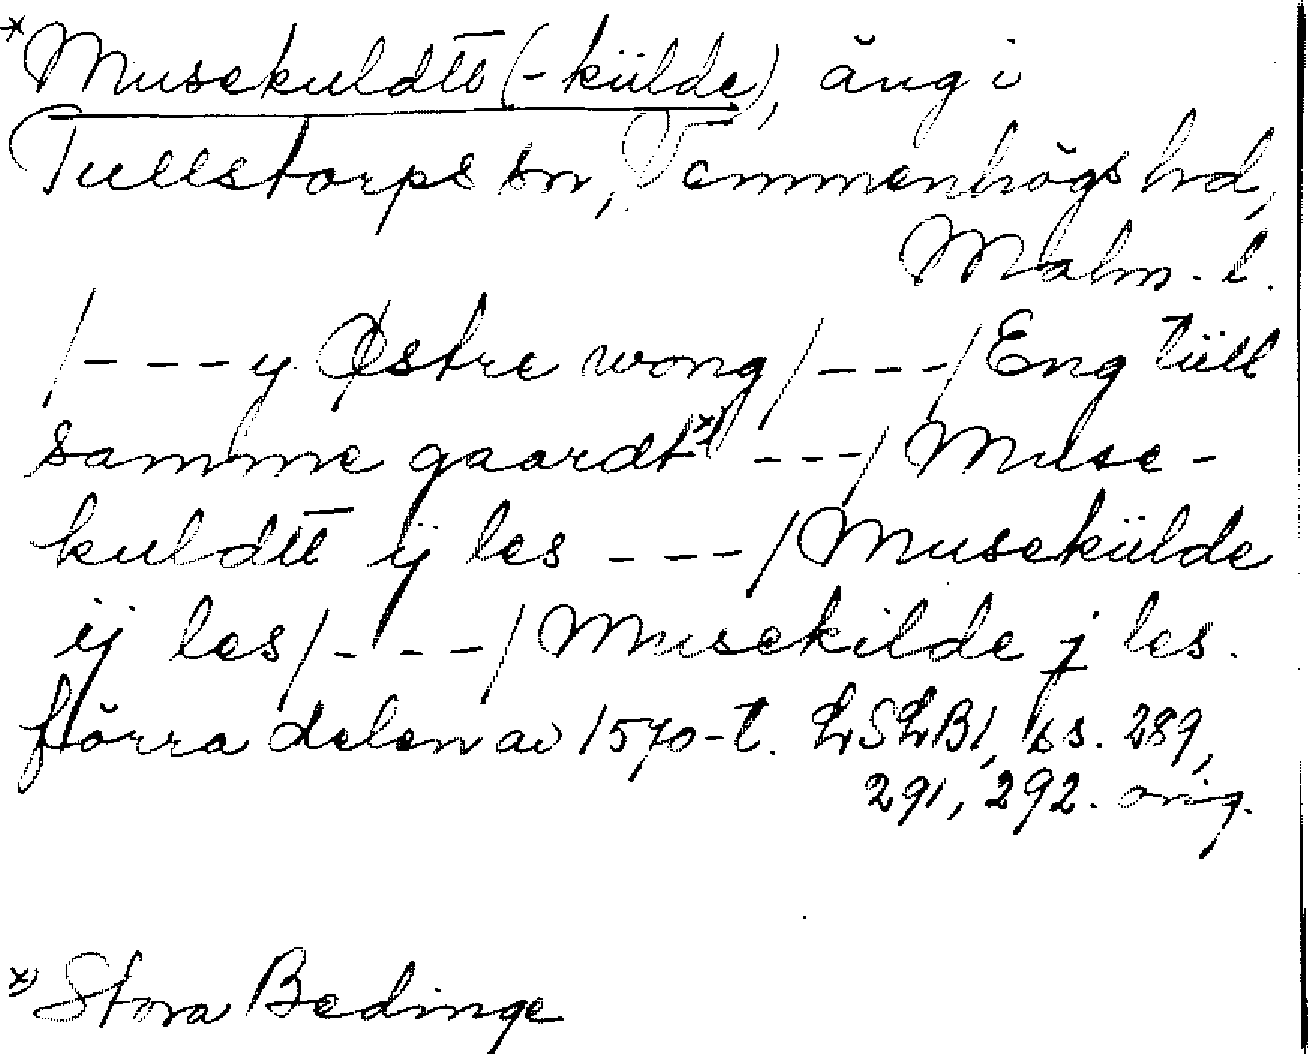 *Musekuldtt (-külde), äng i
Tullstorps sn, Vemmenhögs hd,
Malm. l.
/---y Østre wong/---/Eng tüll
samme gaardt*) ---/Muse-
kuldtt ij les ---/Musekülde
ij les/---/Musekilde j les.
förra delen av 1570-t. LSLB1, ss. 289,
291, 292. orig.
*) Stora Bedinge